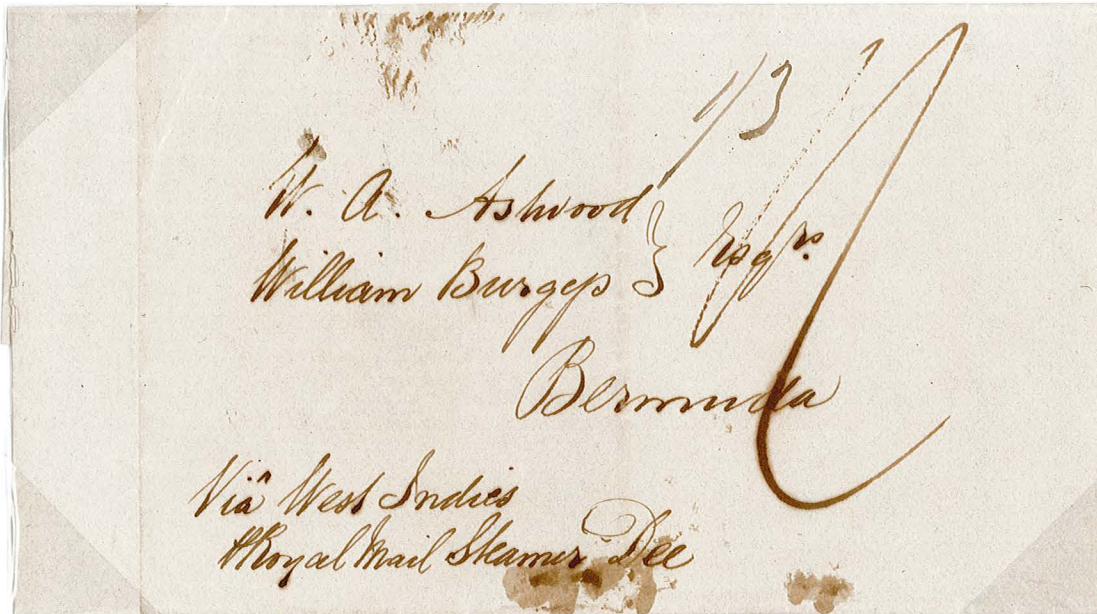 1/3
W. A. Ashwood
William Burgess } Esqrs.
Bermuda
Viâ West Indies
Royal Mail Steamer Dee